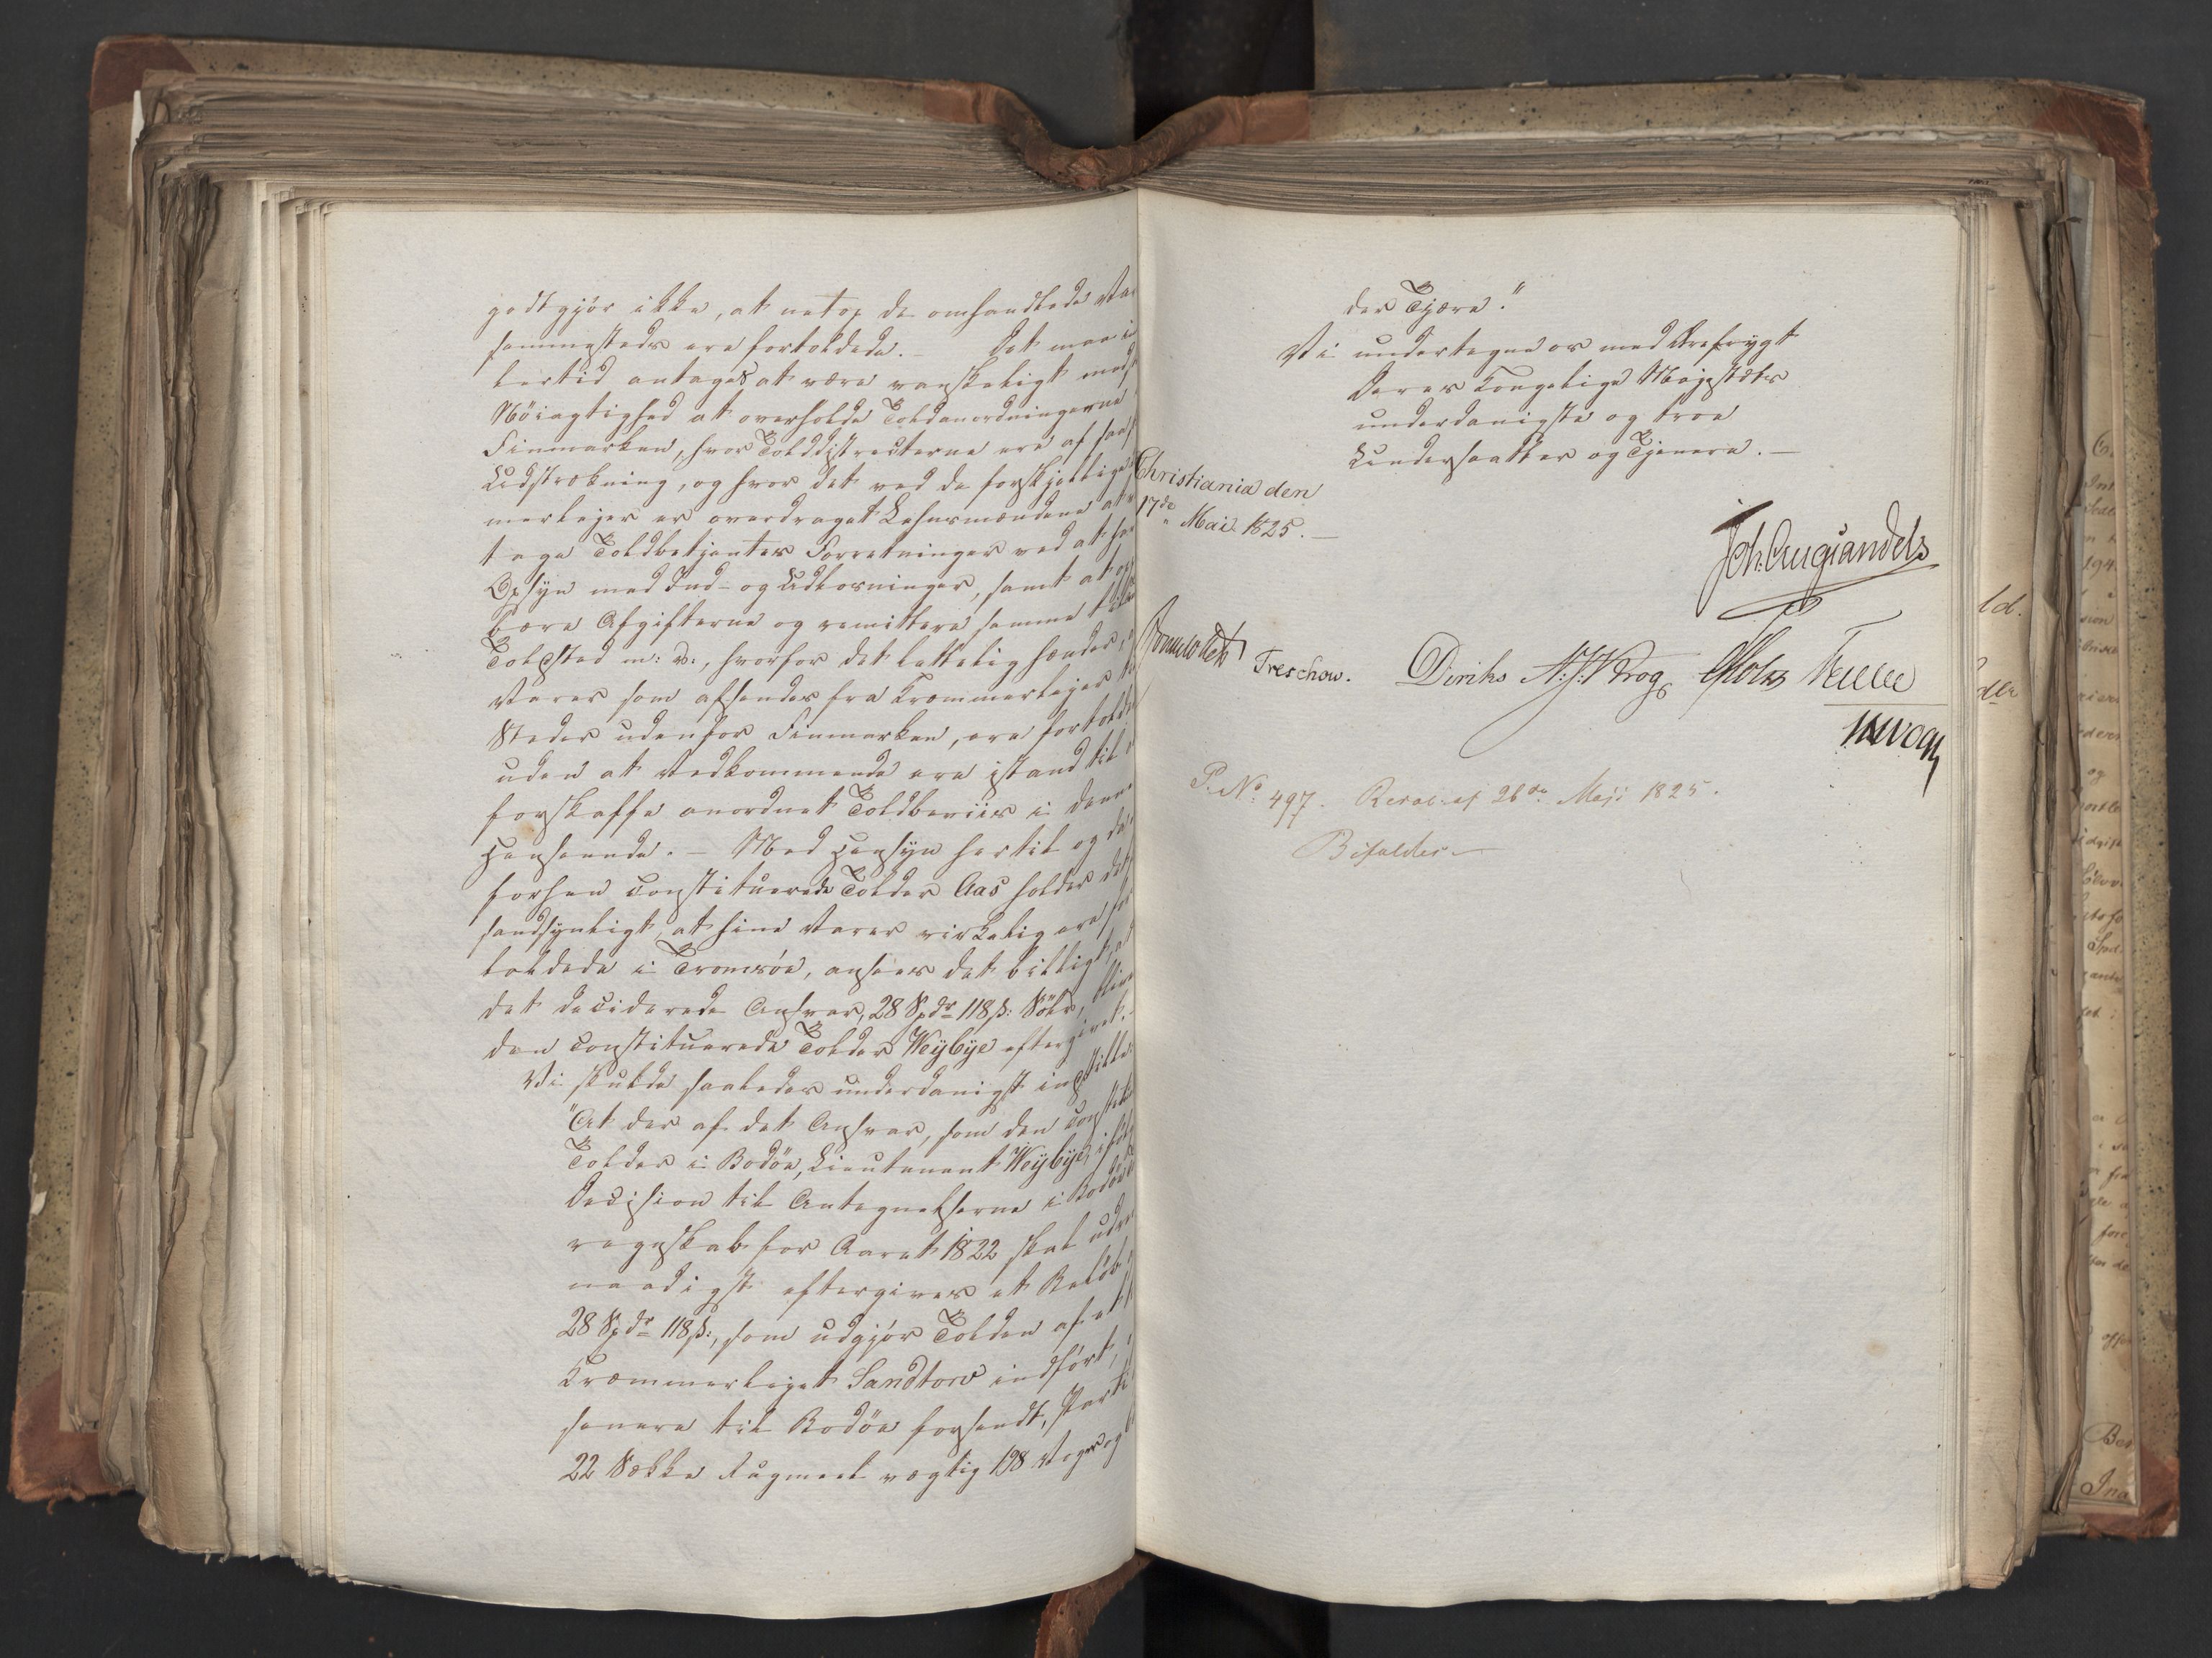 godtgjör ikke, at netop de omhandlede Va
sammesteds ere fortoldede. – Det maa i
lertid antages at være vanskeligt med
Nöiagtighed at overholde Toldanordningerne
Finmarken, hvor Tolddistricterne ere af saa
Udstrækning, og hvor det ved de forskjellige
merlejer er overdraget Lehnsmændene at
tage Toldbetjenters Forretninger ved at ha
Opsyn med Ind- og Udlosninger, samt at op
bære Afgifterne og remittere samme til
Toldsted m: v:, hvorfor det lettelig hænder,
Varer som afsendes fra Kræmmerlejer til
Steder udenfor Finmarken, ere fortoldede
uden at Vedkommende ere istand til
forskaffe anordnet Toldbeviis i denne
Henseende. – Med Hensyn hertil og da
forhen constituerede Tolder Aas holder det
sandsynligt, at hine Varer virkelig ere for
toldede i Tromsöe, ansees det billigt, at
det deciderede Ansvar, 28 Spdr 118 ß: Sölv, bliver
den constituerede Tolder Weybye eftergivet. –
Vi skulde saaledes underdanigst indstille:
"At der af det Ansvar, som den const
Tolder i Bodöe, Lieutenant Weybye, ifölg
Decision til Antegnelserne i Bodöe
regnskab for Aaret 1822 skal udre
naadigst eftergives et Belöb
28 Spdr 118 ß:, som udgjör Tolden af et
Kræmmerlejet Sandtorv indfört,
senere til Bodöe forsendt, Parti
22 Sække Rugmeel vægtig 198 Voger og
der Tjære."
Vi undertegne os med Ærefrygt
Deres Kongelige Majestæts
underdanigste og troe
Undersaatter og Tjenere. –
Christiania den
17de Mai 1825. –
Joh. Aug. Sandels
Sommerfeldt Treschow. Diriks N. J. Krog Holst Fasting
J. H. Vogt
P. No 497. Resol: af 26de Maji 1825.
Bifaldes –